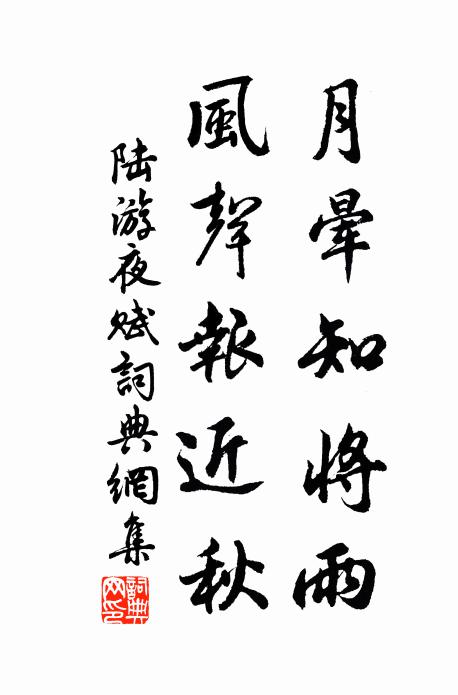 月暈知將雨
風聲報近秋
陆游夜赋詞典網集
詞典網印